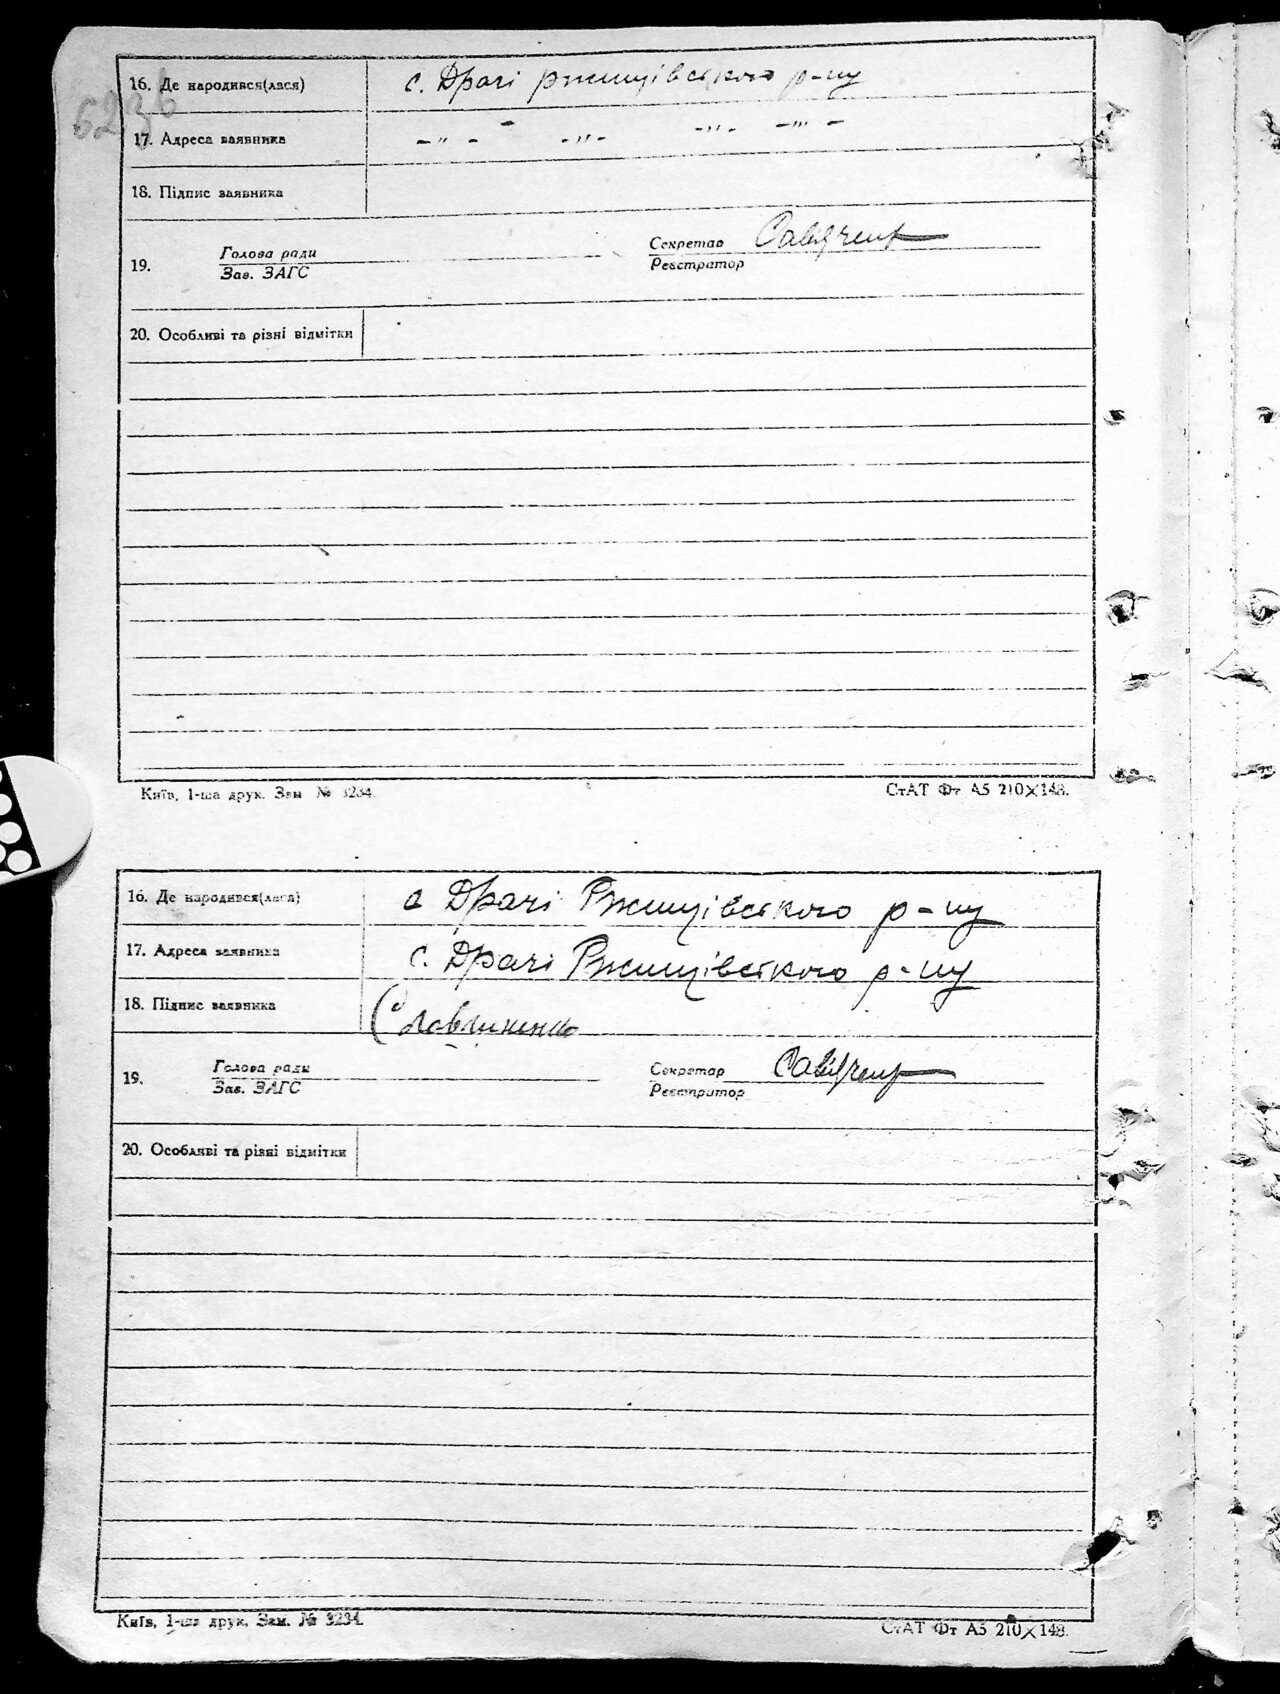 623б
16. Де народився(лася) с. Драчі ржищівського р-ну
17. Адреса заявника -"- -"- -"- -"-
18. Підпис заявника
19. Голова ради Секретар Савдченко
Зав. ЗАГС Реєстратор
20. Особливі та різні відмітки
Київ, 1-ша друк. Зам № 3234.
СтАТ Фт А5 210×148.
16. Де народився(лася) с Драчі Ржищівського р-ну
17. Адреса заявника с. Драчі Ржищівського р-ну
18. Підпис заявника
19. Голова ради Секретар Савдченко
Зав. ЗАГС Реєстратор
20. Особливі та різні відмітки
Київ, 1-ша друк. Зам. № 3234.
СтАТ Фт А5 210×148.